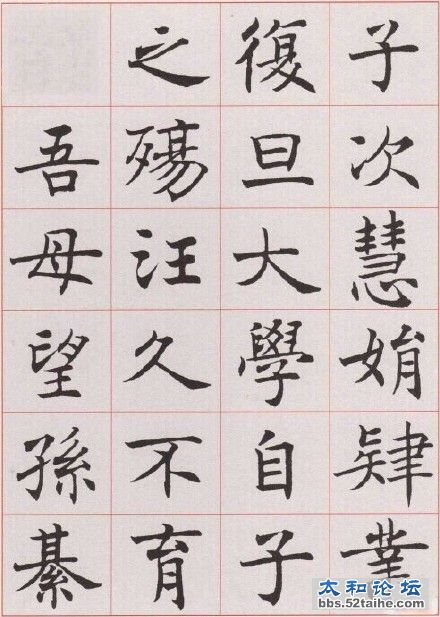 子次慧娟肄業
復旦大學自子
之殤汪久不育
吾母望孫綦
太和论坛
bbs.52taihe.com